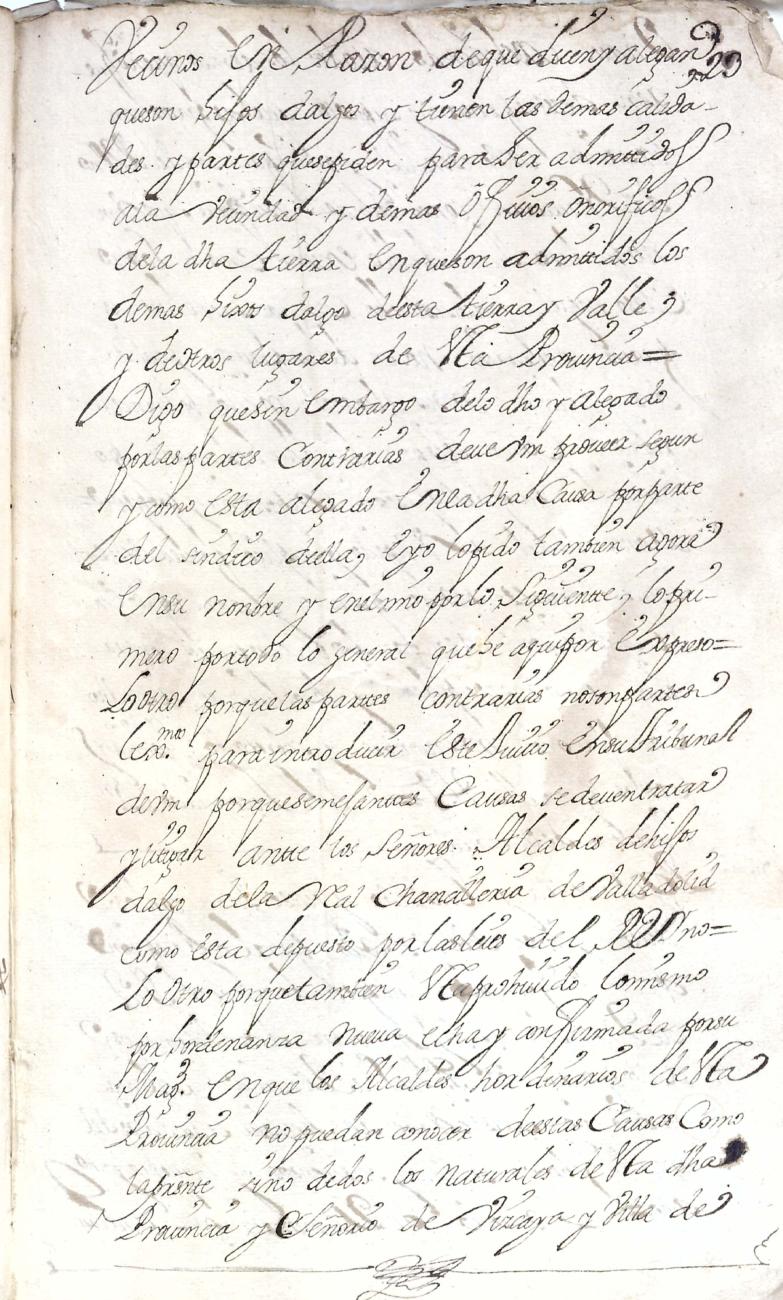 Vecinos En Razon deque diceny alegan 23
queson hijos dalgo y tienen las demas calida-
des y partes quesepiden para Ser admitidos
ala Vecindad y demas officios onorificos
dela dha tierra Enqueson admitidos los
demas hixos dalgo deesta tierra y Valle
y deotros lugares de Vta Prouincia=
Digo quesin embargo delo dho y alegado
porlas partes Contrarias deue Vm proueer segun
y como esta alegado Enla dha Causa porparte
del sindico della, eyo lopido tambien agora
Ensu nonbre y enelmio porlo Siguiente, lo pri-
mero portodo lo general quehe aquipor Expreso=
Lo otro porquelas partes contrarias nosonpartes
lexmas para introducir Este Juicio Ensu Tribunal
devm porquesemejantes Causas sedeuentratar
y litigar antte los Señores Alcaldes dehijos
dalgo dela Real Chancilleria de Valladolid
Como esta dispuesto por lasleies del RRno=
Lo Otro porquetambien Vta prohiuido lomismo
por hordenanza nueua echa y confirmada porsu
Magd. Enque los Alcaldes hordinarios deVta
Prouincia no puedan conocer deestas Causas Como
lapresnte sino dedos los naturales deVta dha
Prouincia y Señorio de Vizcaya y Villa de